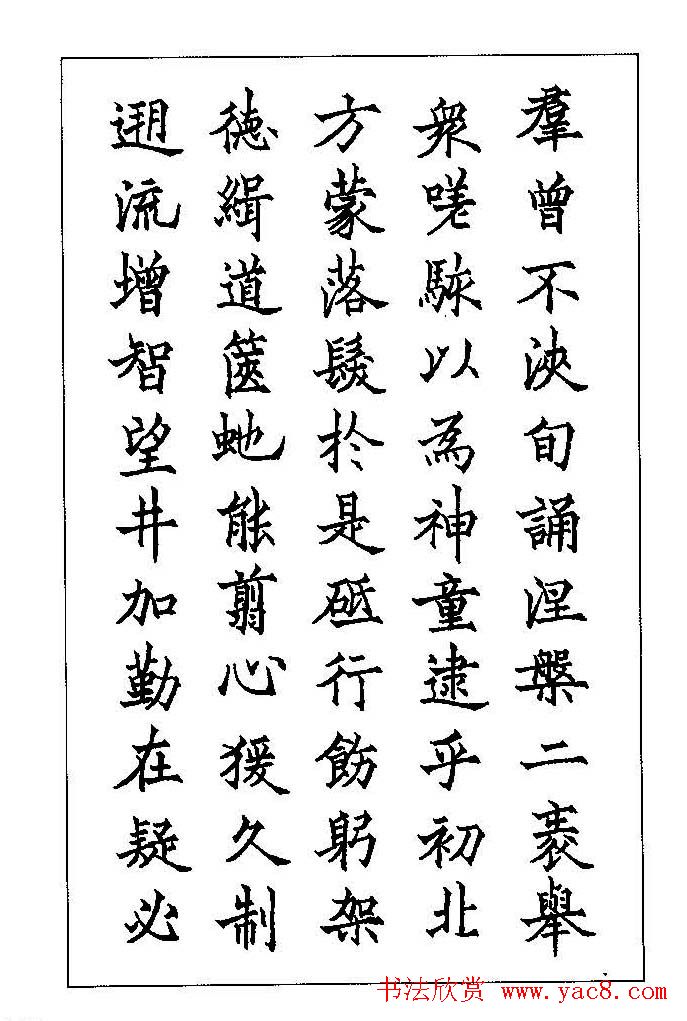 羣曾不浹旬誦涅槃二袠舉
衆嗟駭以為神童逮乎初北
方蒙落髮於是砥行飭躬架
德緝道箧虵能翦心猨久制
迴流增智望井加勤在疑必
书法欣赏 www.yac8.com